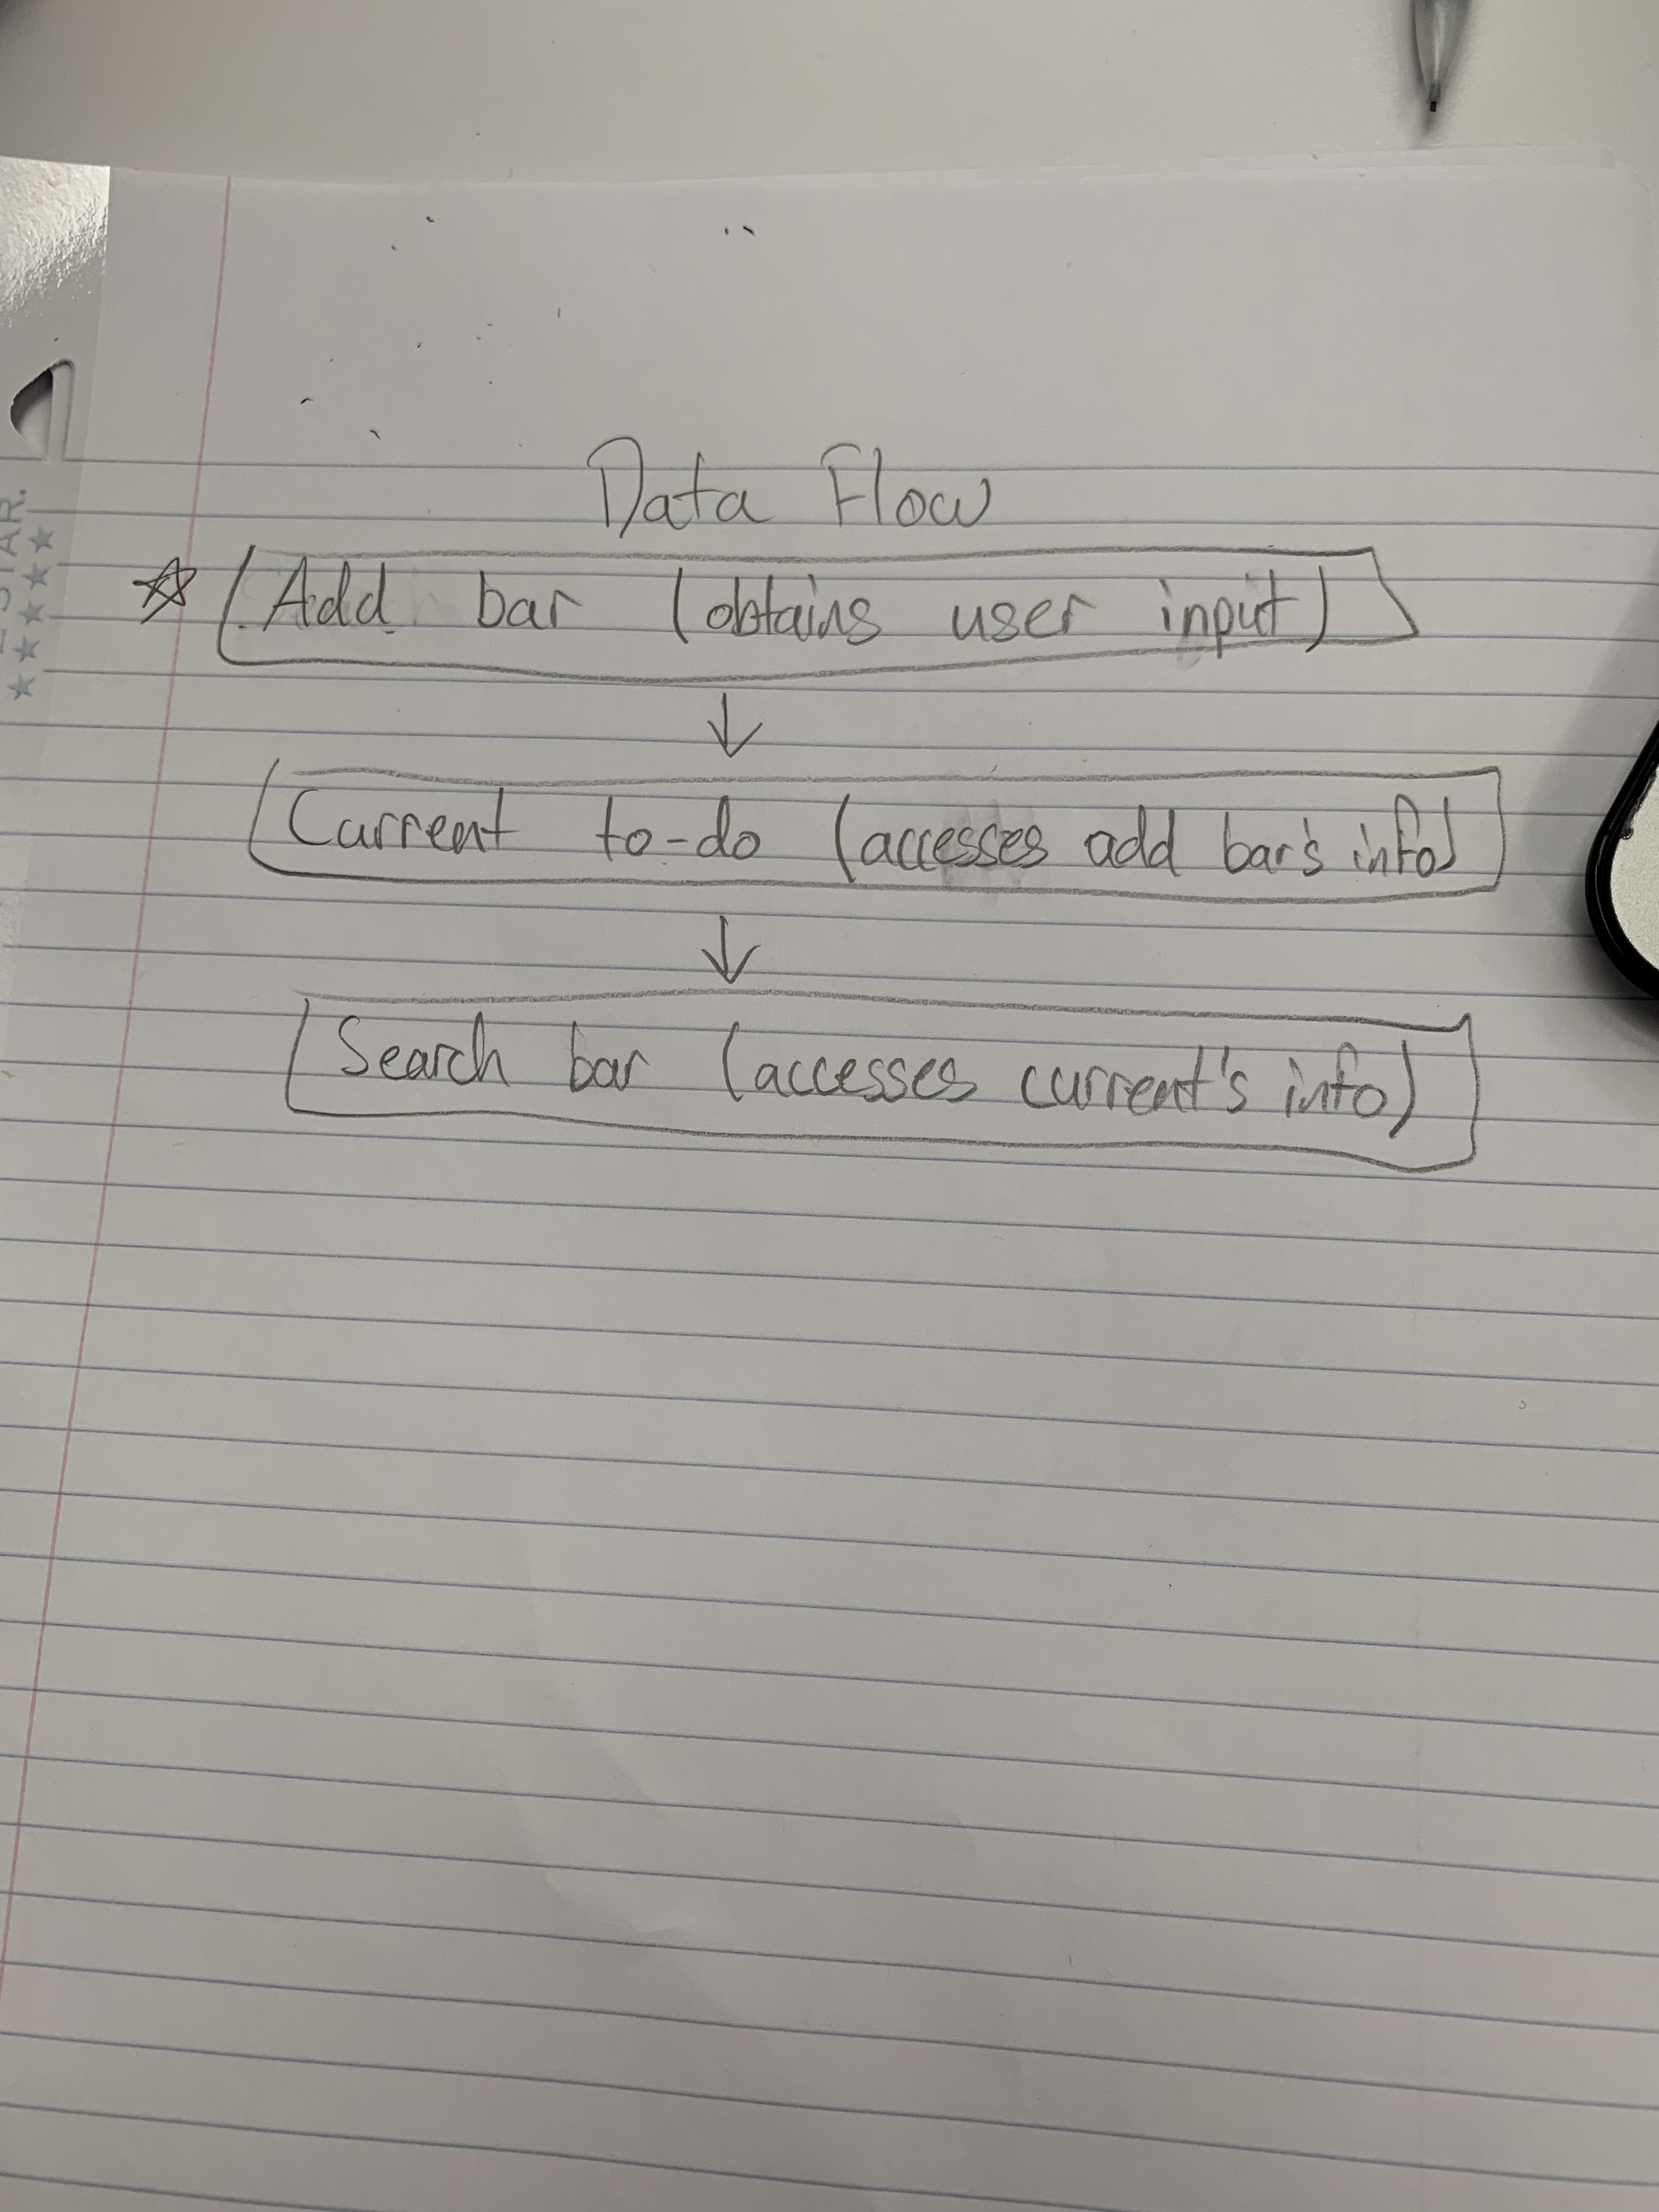 Data Flow
Add bar (obtains user input)
Current to-do (accesses add bar's info)
Search bar (accesses current's info)